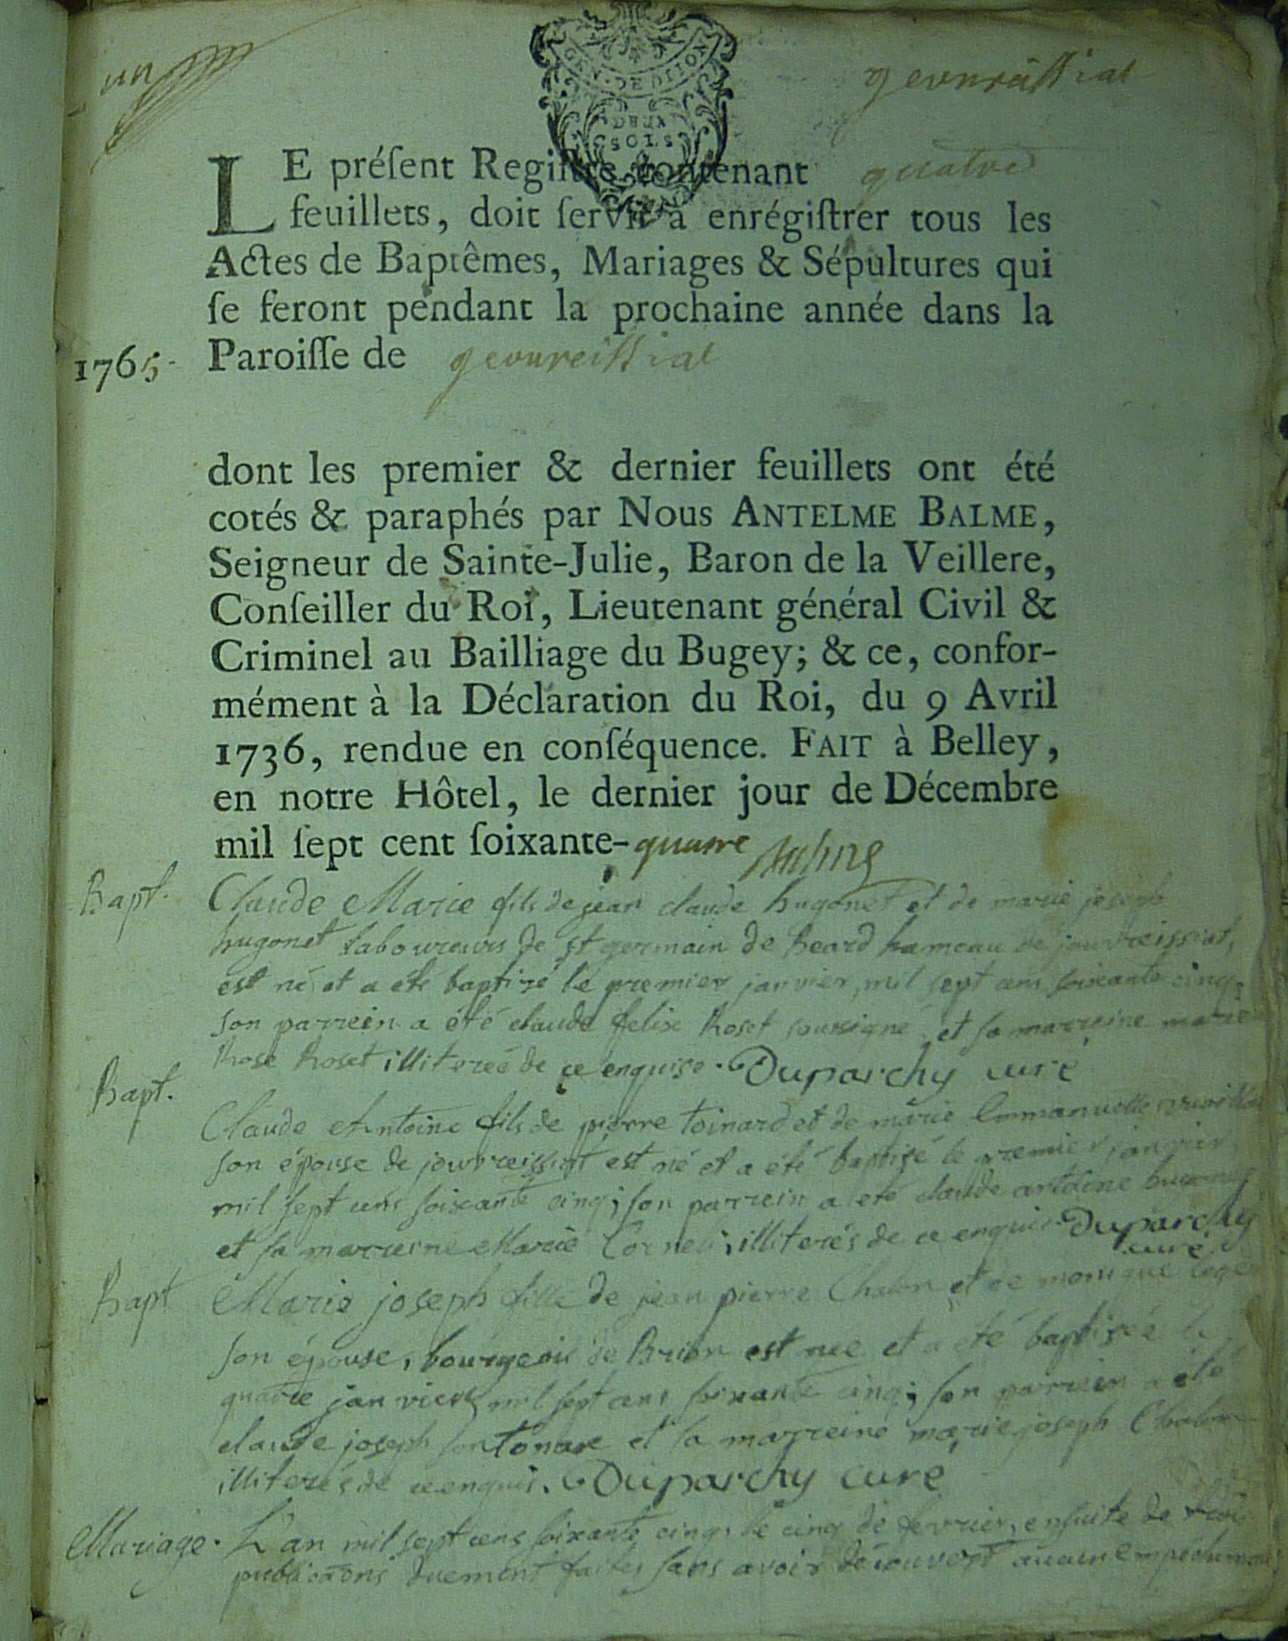 un
GEN. DE DIJON
DEUX
SOLS
gevureissiat
LE préſent Regiſtre contenant quatre
feuillets, doit ſervir à enrégiſtrer tous les
Actes de Baptêmes, Mariages & Sépultures qui
ſe feront pendant la prochaine année dans la
1765. Paroiſſe de gevureissiat
dont les premier & dernier feuillets ont été
cotés & paraphés par Nous ANTELME BALME,
Seigneur de Sainte-Julie, Baron de la Veillere,
Conſeiller du Roi, Lieutenant général Civil &
Criminel au Bailliage du Bugey; & ce, confor-
mément à la Déclaration du Roi, du 9 Avril
1736, rendue en conſéquence. FAIT à Belley,
en notre Hôtel, le dernier jour de Décembre
mil ſept cent ſoixante-quatre
Bapt. Claude Marie fils de jean claude hugonet et de marie joseph
hugonet laboureurs de st germain de Beard hameau de jouvreissiat,
est né et a été baptisé le premier janvier, mil sept cens soixante cinq,
son parrein a été claude felix Roset soussigné, et sa marreine marie
Rose Roset illiterée de ce enquise. Duparchy curé
Bapt. Claude Antoine fils de pierre toinard et de marie Emmanuelle
son épouse de jouvreissiat est né et a été baptisé le premier janvier
mil sept cens soixante cinq; son parrein a été claude antoine
et sa marreine Marie Cornet; illiterés de ce enquis. Duparchy
curé
Bapt Marie joseph fille de jean pierre Chalon et de monique
son épouse, bourgeois de Brion est née et a été baptisée le
quatre janvier mil sept cens soixante cinq; son parrein a été
claude joseph et sa marreine marie joseph Chalon
illiterés de ce enquis. Duparchy curé
Mariage. L'an mil sept cens soixante cinq, le cinq de fevrier, ensuite de trois
publications duement faites sans avoir découvert aucun empechement